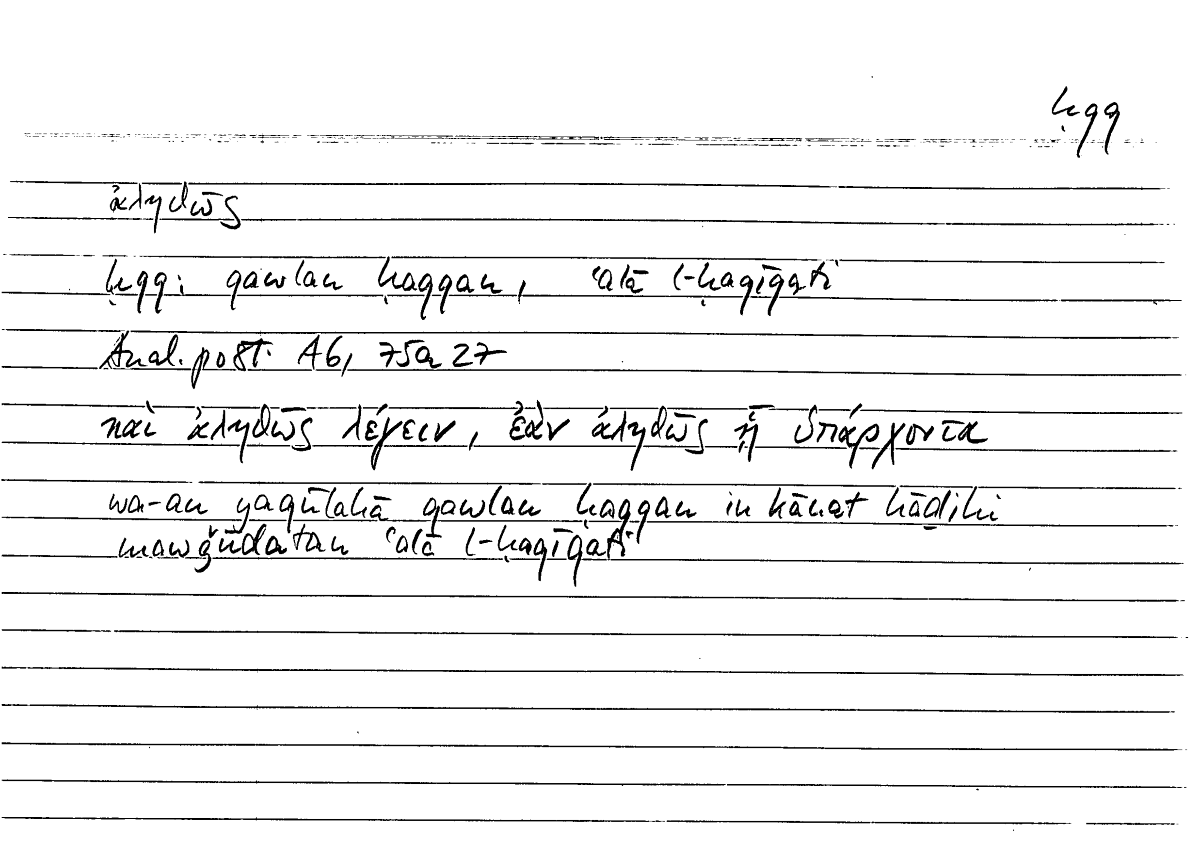 ḥqq
ἀληθῶς
ḥqq: qawlan ḥaqqan, ʿalā l-ḥaqīqati
Anal. post. A6, 75a27
καὶ ἀληθῶς λέγειν, ἐὰν ἀληθῶς ᾖ ὑπάρχοντα
wa-an yaqūlahā qawlan ḥaqqan in kānat hāḏihi
mawǧūdatan ʿalā l-ḥaqīqati